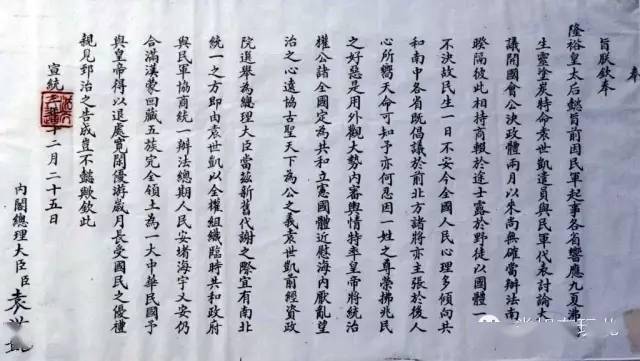 奉
旨朕欽奉
隆裕皇太后懿旨前因民軍起事各省響應九夏沸
生靈塗炭特命袁世凱遣員與民軍代表討論大
議開國會公決政體兩月以來尚無確當辦法南
暌隔彼此相持商輟於途士露於野徒以國體一
不決故民生一日不安今全國人民心理多傾向共
和南中各省既倡議於前北方諸將亦主張於後人
心所嚮天命可知予亦何忍因一姓之尊榮拂兆民
之好惡是用外觀大勢內審輿情特率皇帝將統治
權公諸全國定為共和立憲國體近慰海內厭亂望
治之心遠協古聖天下為公之義袁世凱前經資政
院選舉為總理大臣當茲新舊代謝之際宜有南北
統一之方即由袁世凱以全權組織臨時共和政府
與民軍協商統一辦法總期人民安堵海宇乂安仍
合滿漢蒙回藏五族完全領土為一大中華民國予
與皇帝得以退處寬閒優游歲月長受國民之優禮
親見郅治之告成豈不懿歟欽此
宣統三年十二月二十五日
內閣總理大臣臣袁世凱